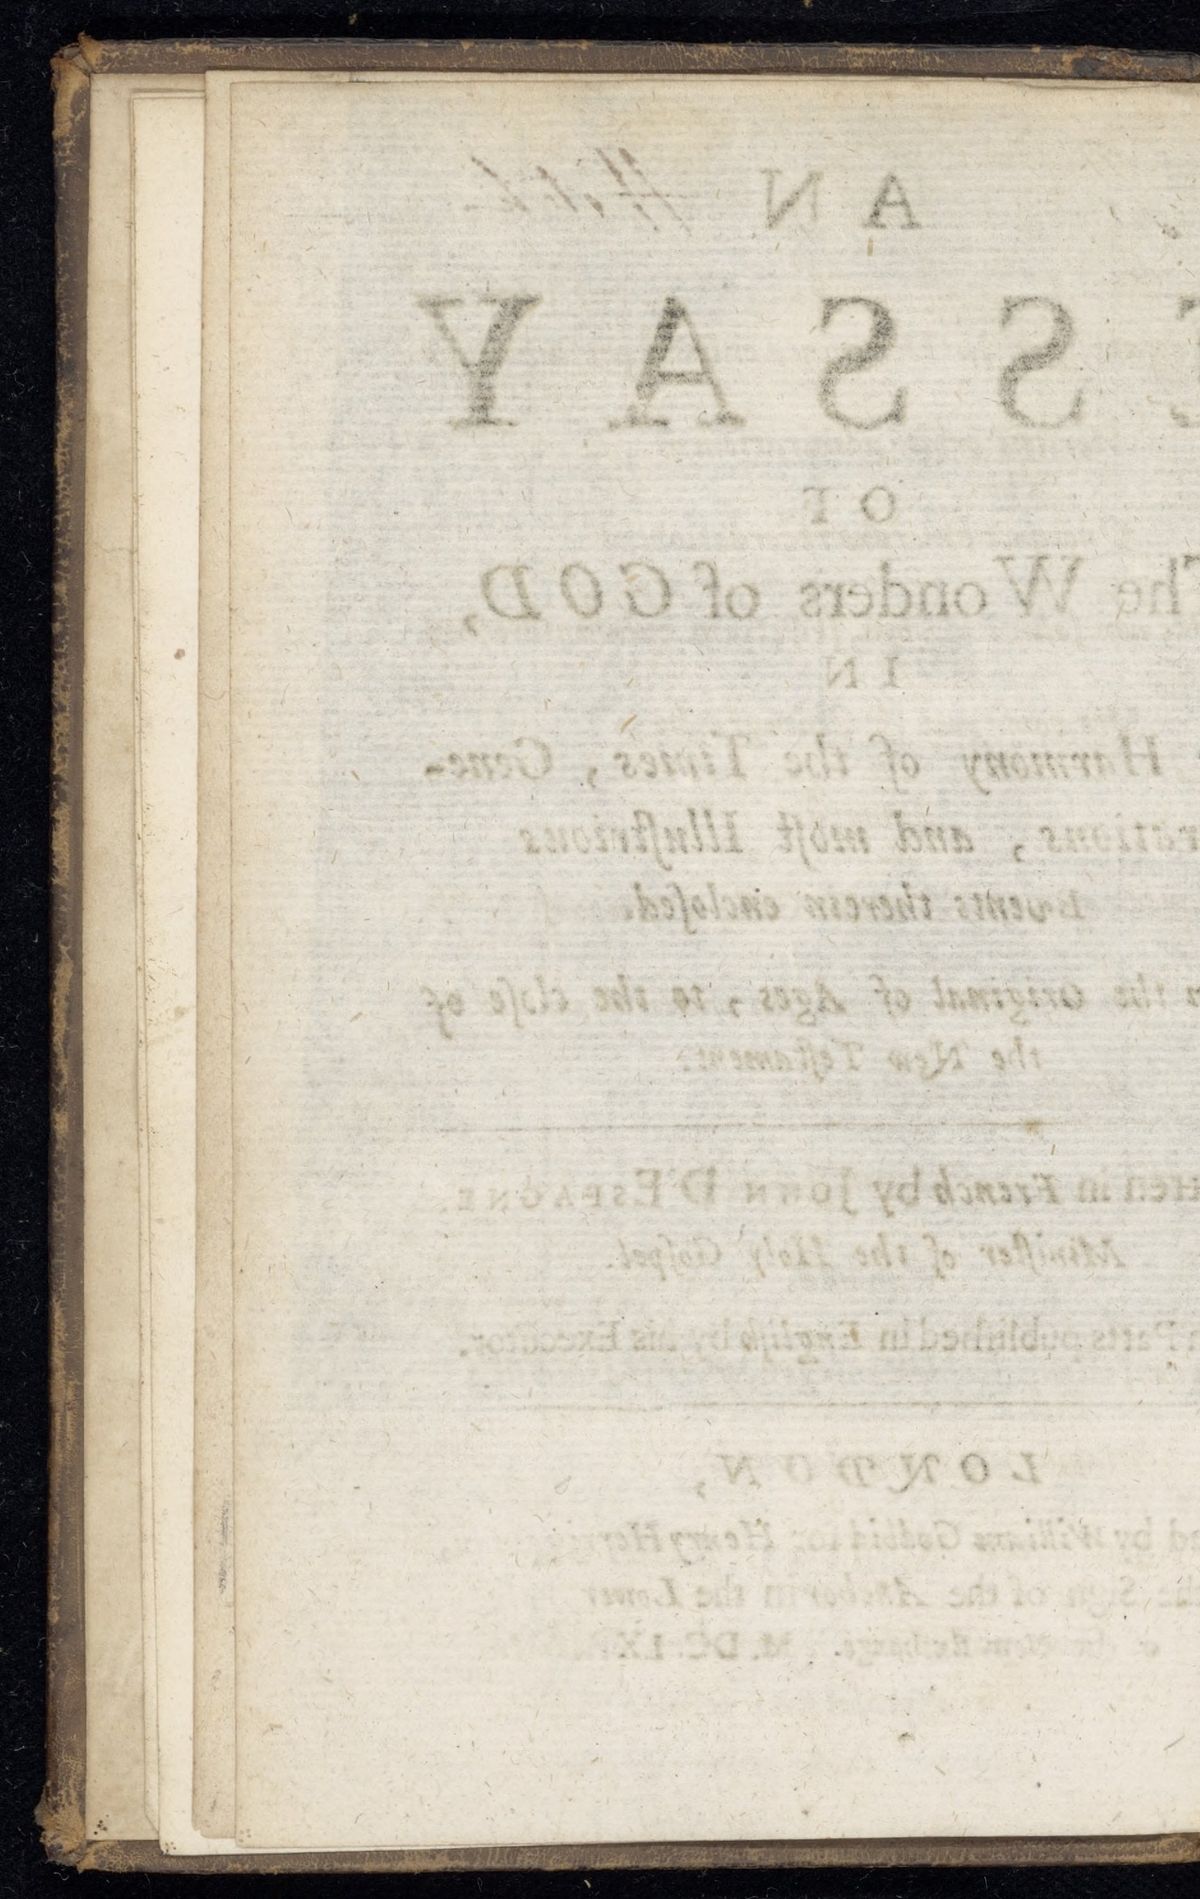 AN
SSAY
OF
The Wonders of GOD,
IN
Harmony of the Times, Gene-
rations, and most Illuſtrious
Events therein encloſed.
the Original of Ages, to the cloſe of
the New Teſtament.
in French by JOHN D'ESPAGNE,
Miniſter of the Holy Goſpel.
Parts published in Engliſh by his Executor.
LONDON,
by William Godbid for Henry
Sign of the Anchor in the Lower
M. DC. LX